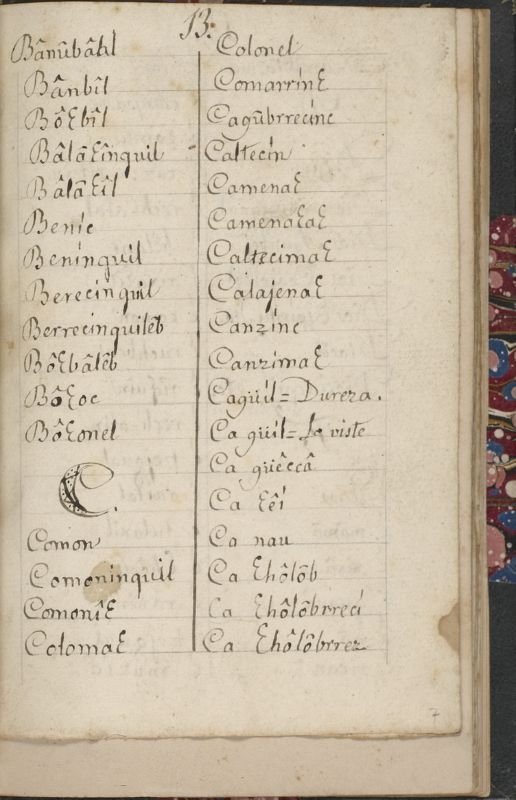 13.
Bânûbâtıl
Bânbîl
Bôꜫbîl
Bâlâꜫînquil
Bâlâꜫîl
Benic
Beninquil
Berecinquil
Berrecinquilêb
Bôꜫbâlêb
Bôꜫoc
Bôꜫonel
C.
Comon
Comoninquil
Comonîꜫ
Colomaꜫ
Colonel
Comarrinꜫ
Cagûbrrecinc
Caltecin
Camenaꜫ
Camenaꜫaꜫ
Caltecimaꜫ
Calajenaꜫ
Canzinc
Canzimaꜫ
Cagüil = Dureza.
Ca güil = Lo viste
Ca güêccâ
Ca ꜫêi
Ca nau
Ca ꜫhôlôb
Ca ꜫhôlôbrreci
Ca ꜫhôlôbrrez
7